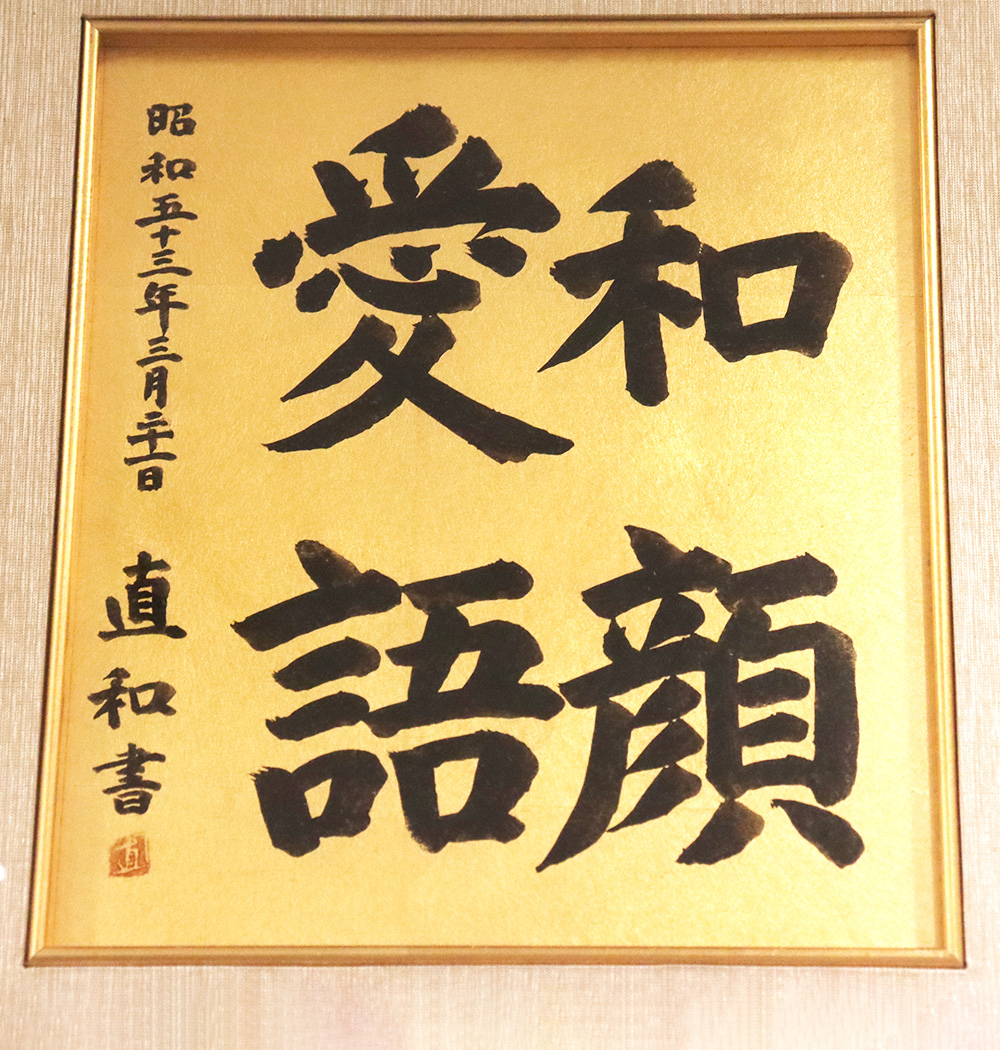 和顔
愛語
昭和五十三年三月二十一日 直和書
直